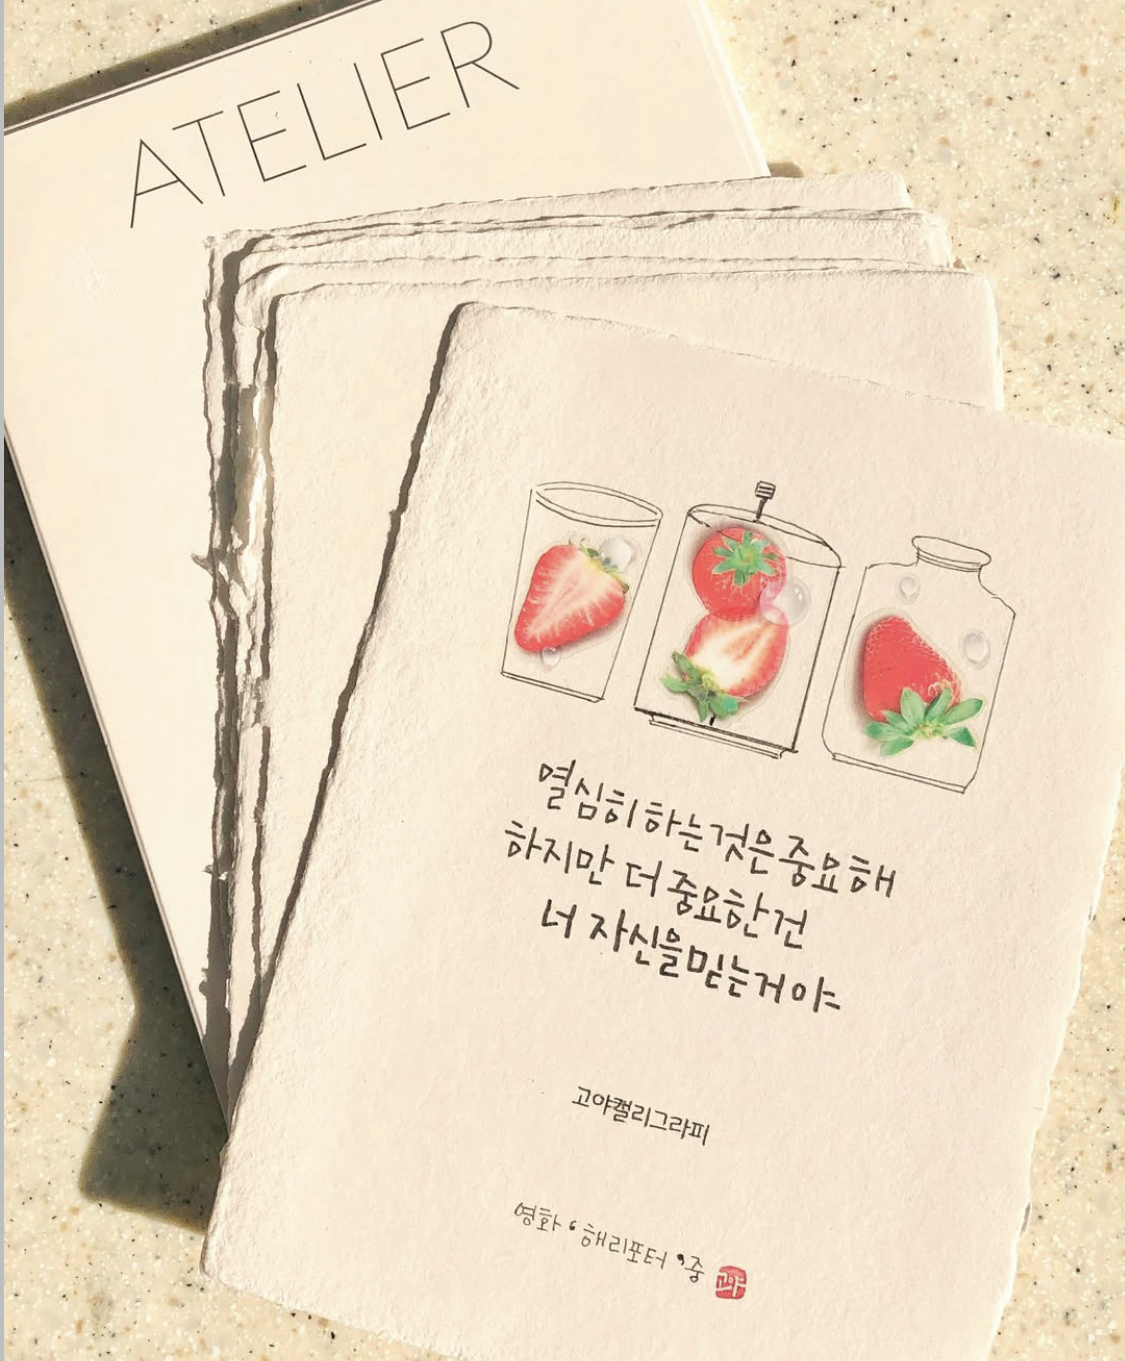 ATELIER
열심히 하는 것은 중요해
하지만 더 중요한 건
너 자신을 믿는 거야
고야캘리그라피
영화 '해리포터' 중
고야